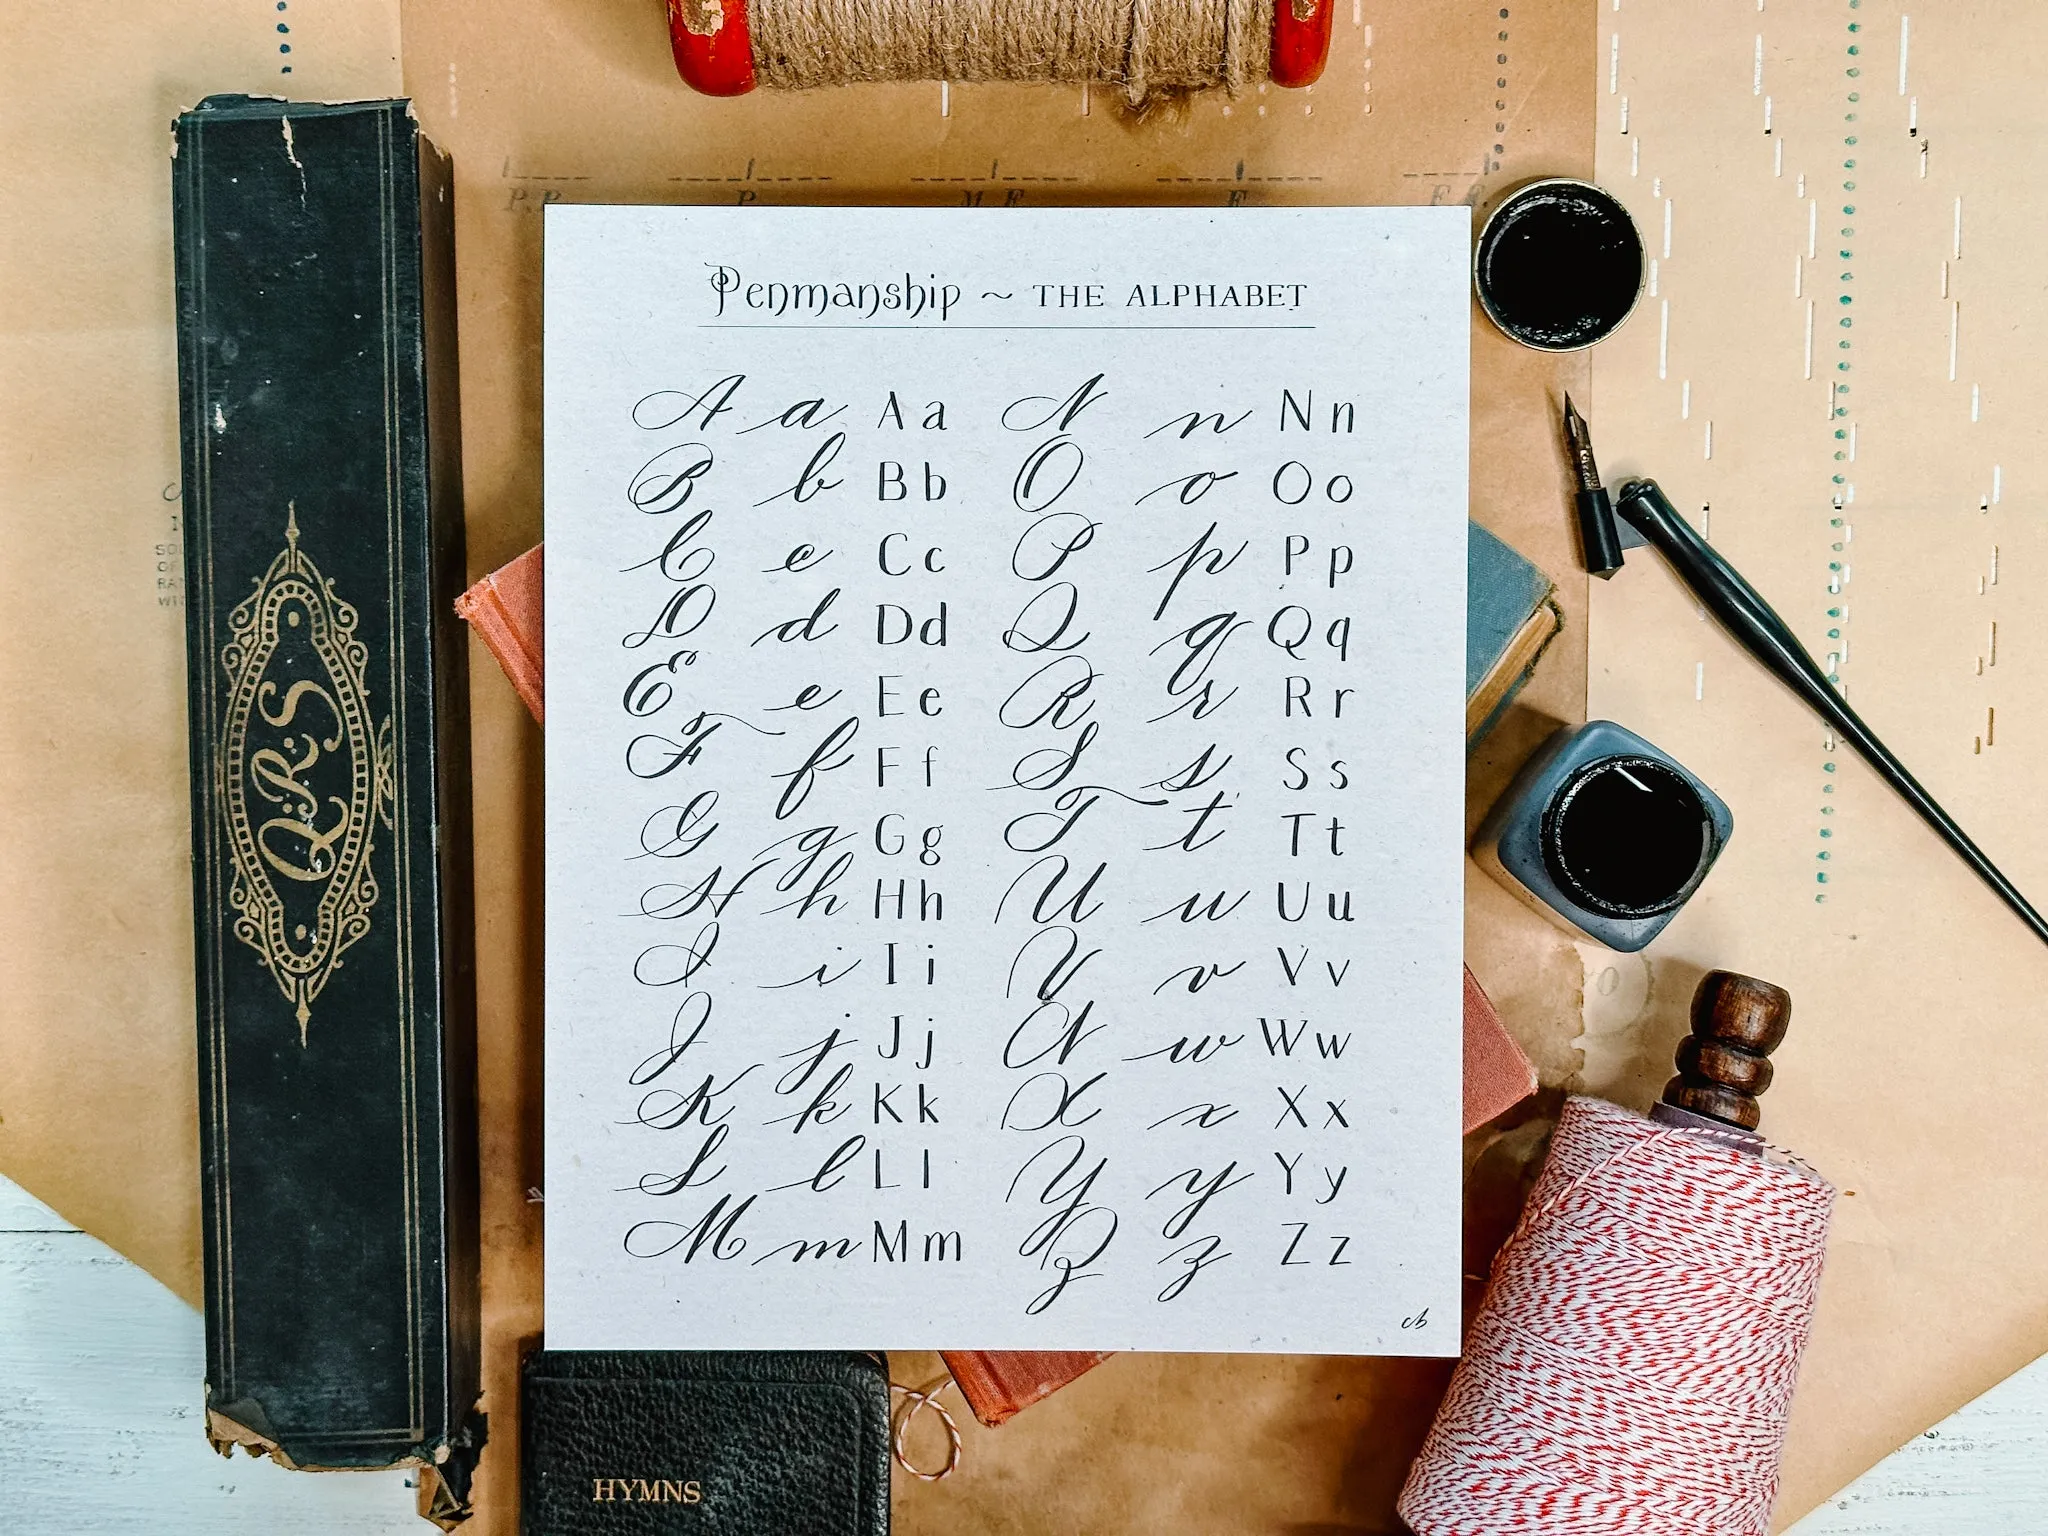 P.P. P M.F. F F.F.
Penmanship ~ THE ALPHABET
A a Aa N n Nn
B b Bb O o Oo
C c Cc P p Pp
D d Dd Q q Qq
E e Ee R r Rr
F f Ff S s Ss
G g Gg T t Tt
H h Hh U u Uu
I i Ii V v Vv
J j Jj W w Ww
K k Kk X x Xx
L l Ll Y y Yy
M m Mm Z z Zz
cb
Q.R.S
HYMNS